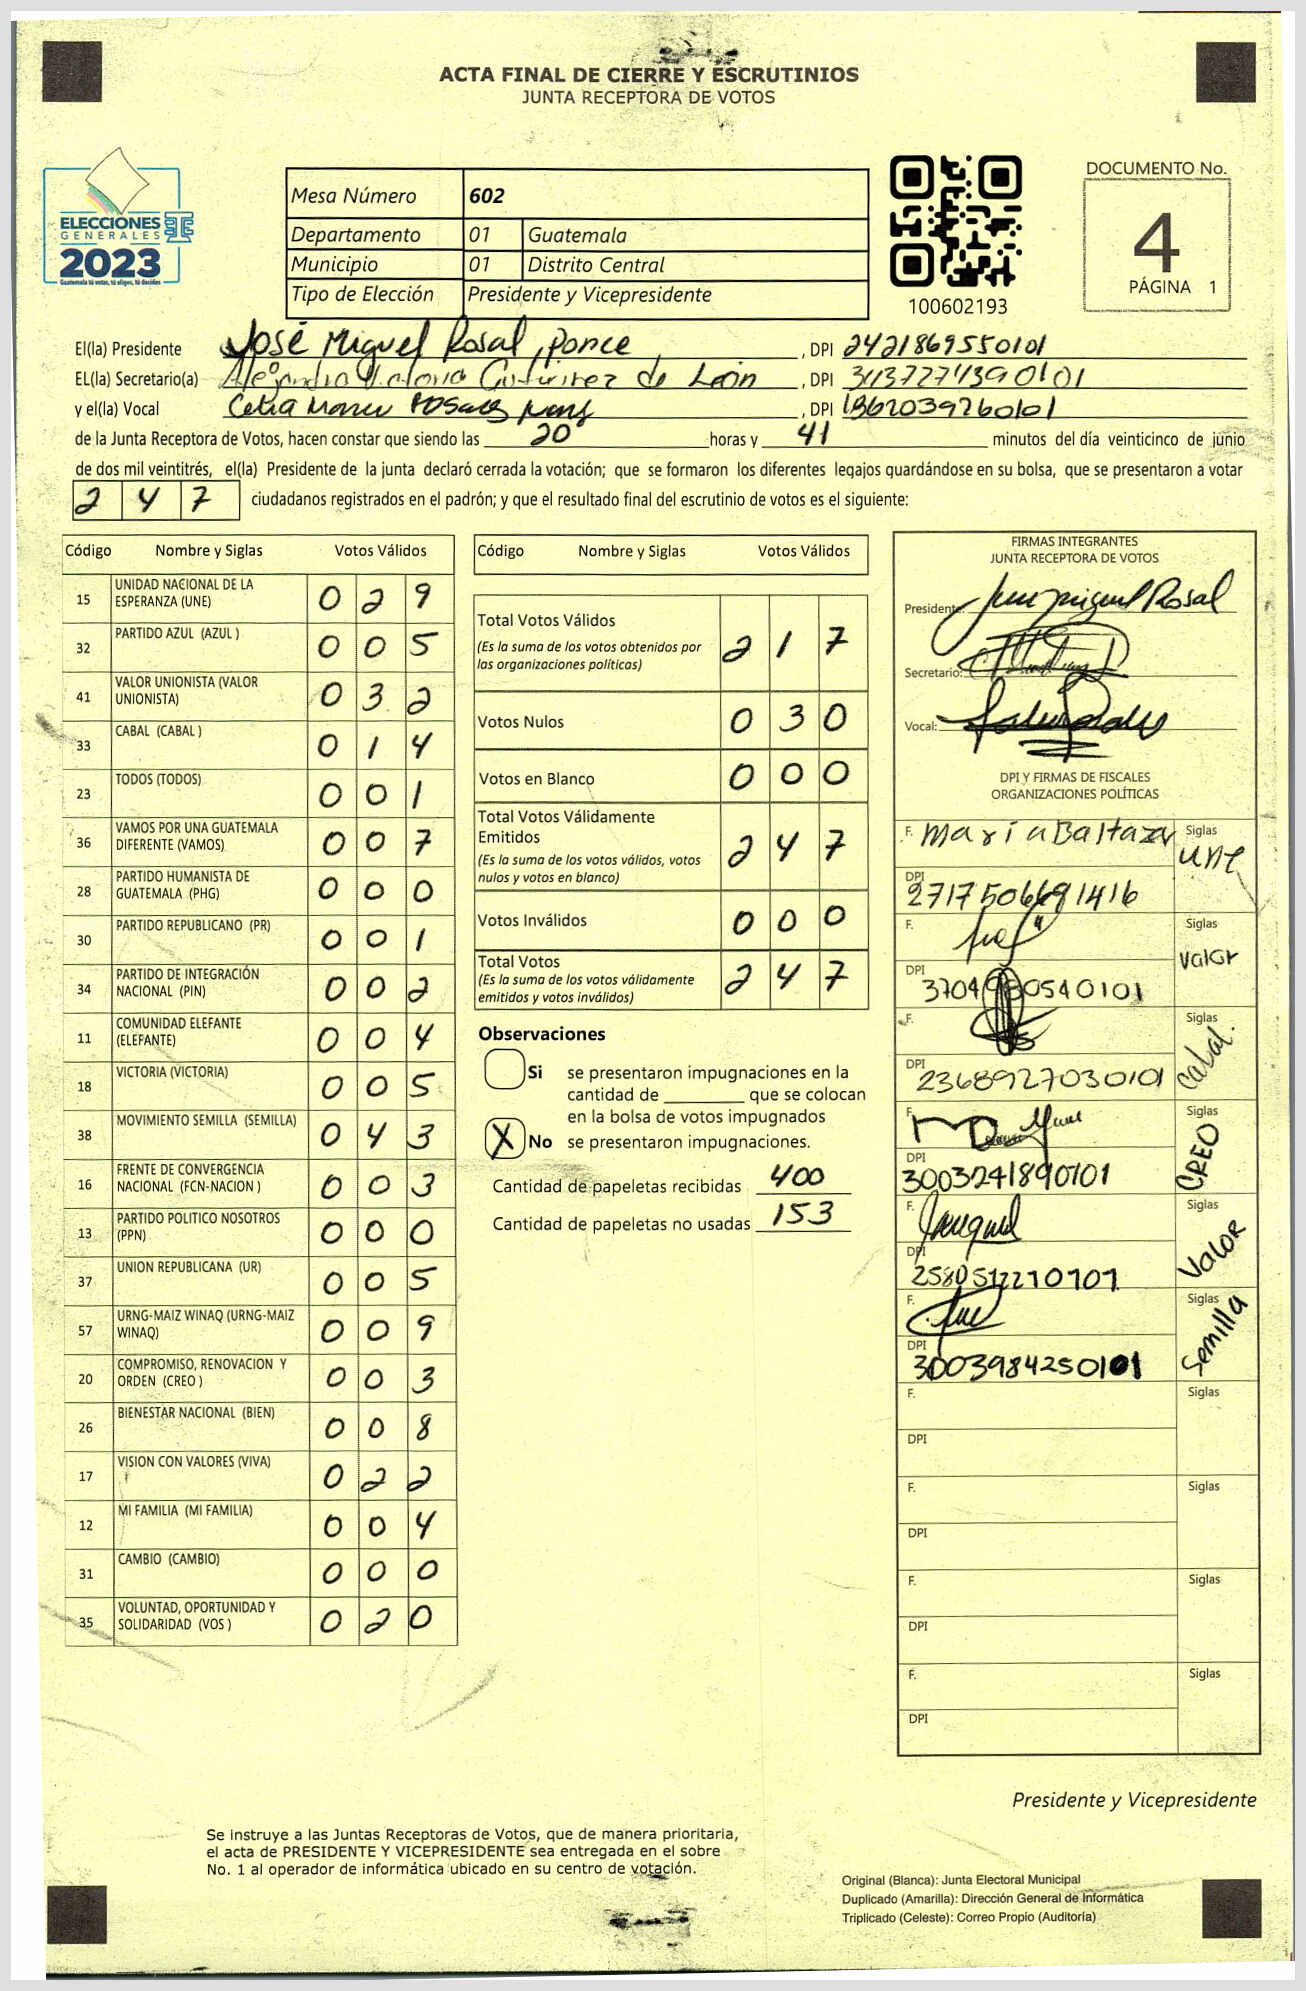 ACTA FINAL DE CIERRE Y ESCRUTINIOS
JUNTA RECEPTORA DE VOTOS
ELECCIONES
GENERALES
2023
Guatemala tú votas, tú eliges, tú decides
Mesa Número 602
Departamento 01 Guatemala
Municipio 01 Distrito Central
Tipo de Elección Presidente y Vicepresidente
100602193
DOCUMENTO No.
4
PÁGINA 1
El(la) Presidente José Miguel Rosal Ponce , DPI 2421869550101
EL(la) Secretario(a) Alejandra Victoria Gutiérrez de León , DPI 3437274390101
y el(la) Vocal , DPI 1862039260101
de la Junta Receptora de Votos, hacen constar que siendo las 20 horas y 41 minutos del día veinticinco de junio
de dos mil veintitrés, el(la) Presidente de la junta declaró cerrada la votación; que se formaron los diferentes legajos quardándose en su bolsa, que se presentaron a votar
2 4 7 ciudadanos registrados en el padrón; y que el resultado final del escrutinio de votos es el siguiente:
Código Nombre y Siglas Votos Válidos
15 UNIDAD NACIONAL DE LA ESPERANZA (UNE) 0 2 9
32 PARTIDO AZUL (AZUL ) 0 0 5
41 VALOR UNIONISTA (VALOR UNIONISTA) 0 3 2
33 CABAL (CABAL ) 0 1 4
23 TODOS (TODOS) 0 0 1
36 VAMOS POR UNA GUATEMALA DIFERENTE (VAMOS) 0 0 7
28 PARTIDO HUMANISTA DE GUATEMALA (PHG) 0 0 0
30 PARTIDO REPUBLICANO (PR) 0 0 1
34 PARTIDO DE INTEGRACIÓN NACIONAL (PIN) 0 0 2
11 COMUNIDAD ELEFANTE (ELEFANTE) 0 0 4
18 VICTORIA (VICTORIA) 0 0 5
38 MOVIMIENTO SEMILLA (SEMILLA) 0 4 3
16 FRENTE DE CONVERGENCIA NACIONAL (FCN-NACION ) 0 0 3
13 PARTIDO POLITICO NOSOTROS (PPN) 0 0 0
37 UNION REPUBLICANA (UR) 0 0 5
57 URNG-MAIZ WINAQ (URNG-MAIZ WINAQ) 0 0 9
20 COMPROMISO, RENOVACION Y ORDEN (CREO ) 0 0 3
26 BIENESTAR NACIONAL (BIEN) 0 0 8
17 VISION CON VALORES (VIVA) 0 2 2
12 MI FAMILIA (MI FAMILIA) 0 0 4
31 CAMBIO (CAMBIO) 0 0 0
35 VOLUNTAD, OPORTUNIDAD Y SOLIDARIDAD (VOS ) 0 2 0
Código Nombre y Siglas Votos Válidos
Total Votos Válidos 2 1 7
(Es la suma de los votos obtenidos por
las organizaciones políticas)
Votos Nulos 0 3 0
Votos en Blanco 0 0 0
Total Votos Válidamente
Emitidos 2 4 7
(Es la suma de los votos válidos, votos
nulos y votos en blanco)
Votos Inválidos 0 0 0
Total Votos 2 4 7
(Es la suma de los votos válidamente
emitidos y votos inválidos)
Observaciones
Si se presentaron impugnaciones en la
cantidad de ________ que se colocan
en la bolsa de votos impugnados
X No se presentaron impugnaciones.
Cantidad de papeletas recibidas 400
Cantidad de papeletas no usadas 153
FIRMAS INTEGRANTES
JUNTA RECEPTORA DE VOTOS
Presidente: Miguel Rosal
Secretario:
Vocal:
DPI Y FIRMAS DE FISCALES
ORGANIZACIONES POLÍTICAS
F. María Baltazar Siglas UNE
DPI 2717506691416
F. Siglas Valor
DPI 3704980540101
F. Siglas Cabal.
DPI 2368927030101
F. Siglas CREO
DPI 3003241890101
F. Siglas Valor
DPI 2580512210101
F. Siglas Semilla
DPI 3003984250101
F. Siglas
DPI
F. Siglas
DPI
F. Siglas
DPI
F. Siglas
DPI
Presidente y Vicepresidente
Se instruye a las Juntas Receptoras de Votos, que de manera prioritaria,
el acta de PRESIDENTE Y VICEPRESIDENTE sea entregada en el sobre
No. 1 al operador de informática ubicado en su centro de votación.
Original (Blanca): Junta Electoral Municipal
Duplicado (Amarilla): Dirección General de Informática
Triplicado (Celeste): Correo Propio (Auditoría)